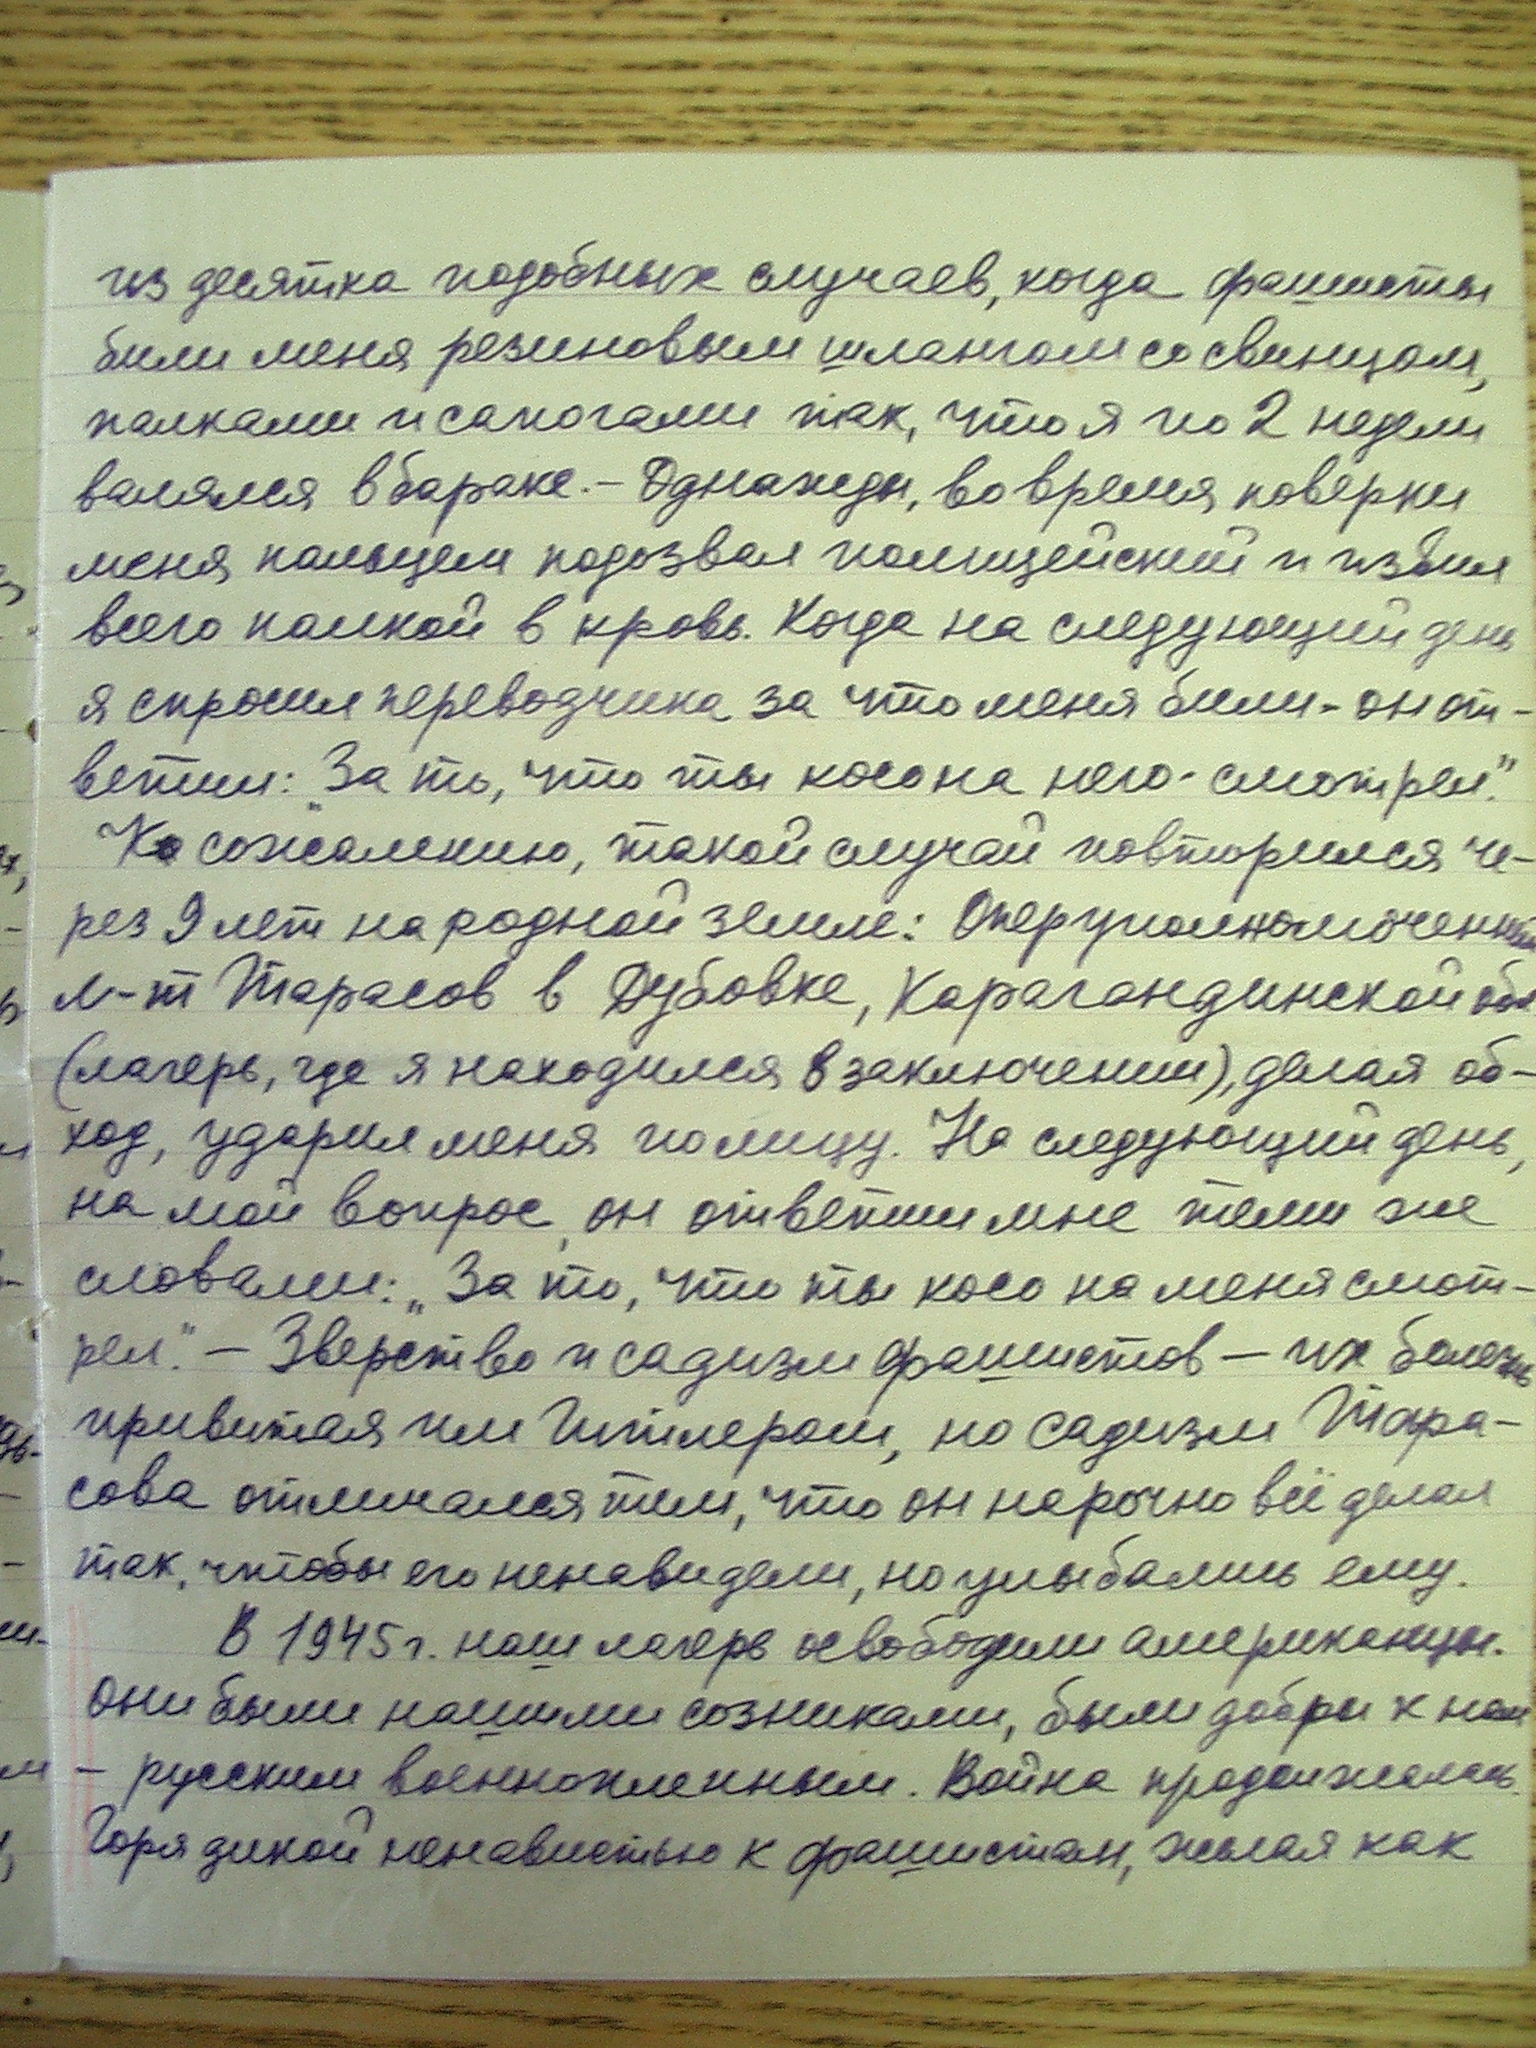 из десятка подобных случаев, когда фашисты
били меня резиновым шлангом со свинцом,
палками и сапогами так, что я по 2 недели
валялся в бараке. – Однажды, во время поверки
меня пальцем подозвал полицейский и избил
всего палкой в кровь. Когда на следующий день
я спросил переводчика за что меня били – он от-
ветил: „За то, что ты косо на него смотрел."
К сожалению, такой случай повторился че-
рез 9 лет на родной земле: Оперуполномоченный
л-т Тарасов в Дубовке, Карагандинской обл
(лагерь, где я находился в заключении), делая об-
ход, ударил меня по лицу. На следующий день,
на мой вопрос, он ответил мне теми же
словами: „За то, что ты косо на меня смот-
рел." – Зверство и садизм фашистов – их болезнь
привитая им Гитлером, но садизм Тара-
сова отличался тем, что он нарочно всё делал
так, чтобы его ненавидели, но улыбались ему.
В 1945 г. наш лагерь освободили американцы.
Они были нашими созниками, были добры к нам
– русским военнопленным. Война продолжалась.
Горя дикой ненавистью к фашистам, желая как